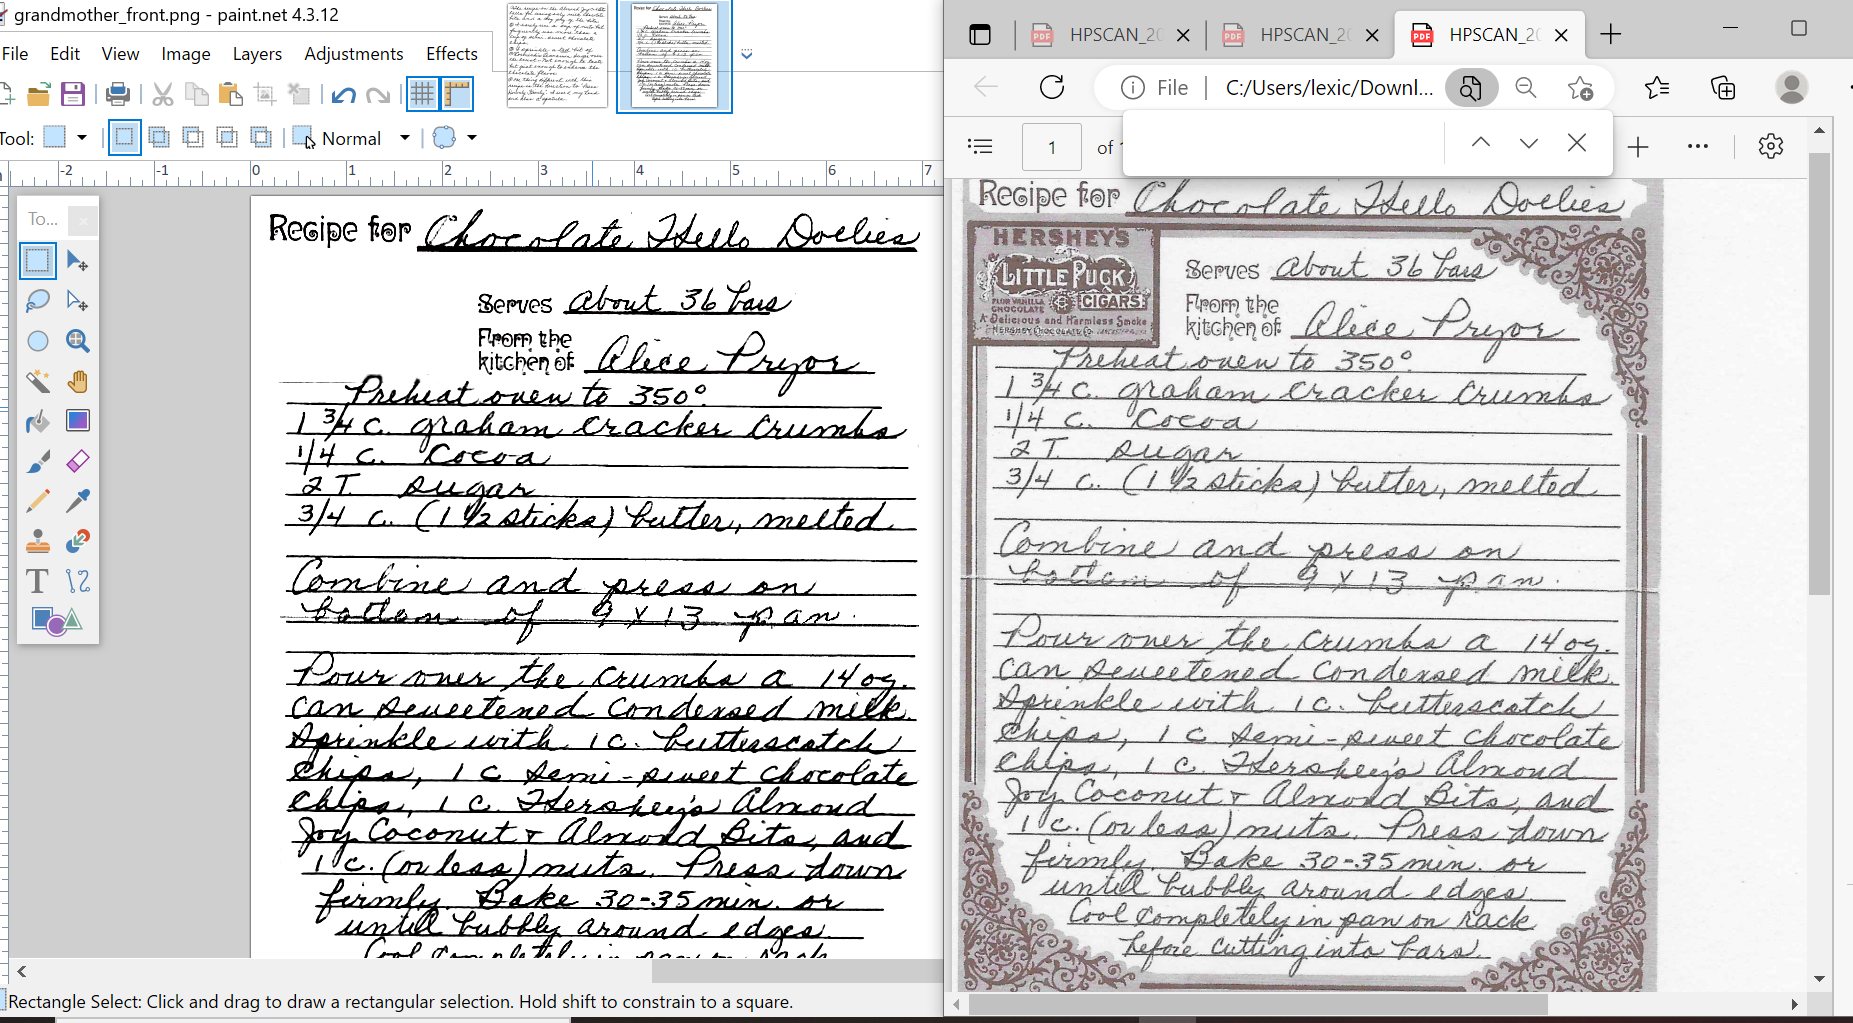 grandmother_front.png - paint.net 4.3.12
File Edit View Image Layers Adjustments Effects
Tool: Normal
-2 -1 0 1 2 3 4 5 6 7
To...
Recipe for Chocolate Hello Dollies
Serves About 36 bars
From the
kitchen of Alice Pryor
Preheat oven to 350°
1 3/4 c. graham cracker crumbs
1/4 c. Cocoa
2 T. sugar
3/4 c. (1 1/2 sticks) butter, melted
Combine and press on
bottom of 9 x 13 pan.
Pour over the crumbs a 14 oz.
can sweetened condensed milk.
Sprinkle with 1 c. butterscotch
chips, 1 c semi-sweet chocolate
chips, 1 c. Hershey's Almond
Joy Coconut & Almond Bits, and
1 c. (or less) nuts. Press down
firmly. Bake 30-35 min. or
until bubbly around edges.
Cool completely in pan on rack
Rectangle Select: Click and drag to draw a rectangular selection. Hold shift to constrain to a square.
HPSCAN_20 HPSCAN_20 HPSCAN_20
File C:/Users/lexic/Downl...
1 of 1
Recipe for Chocolate Hello Dollies
HERSHEY'S
LITTLE PUCK
FLOR VANILLA
CHOCOLATE
CIGARS
A Delicious and Harmless Smoke
HERSHEY CHOCOLATE CO.
Serves About 36 bars
From the
kitchen of Alice Pryor
Preheat oven to 350°
1 3/4 c. graham cracker crumbs
1/4 c. Cocoa
2 T. sugar
3/4 c. (1 1/2 sticks) butter, melted
Combine and press on
bottom of 9 x 13 pan.
Pour over the crumbs a 14 oz.
can sweetened condensed milk.
Sprinkle with 1 c. butterscotch
chips, 1 c semi-sweet chocolate
chips, 1 c. Hershey's Almond
Joy Coconut & Almond Bits, and
1 c. (or less) nuts. Press down
firmly. Bake 30-35 min. or
until bubbly around edges.
Cool completely in pan on rack
before cutting into bars.